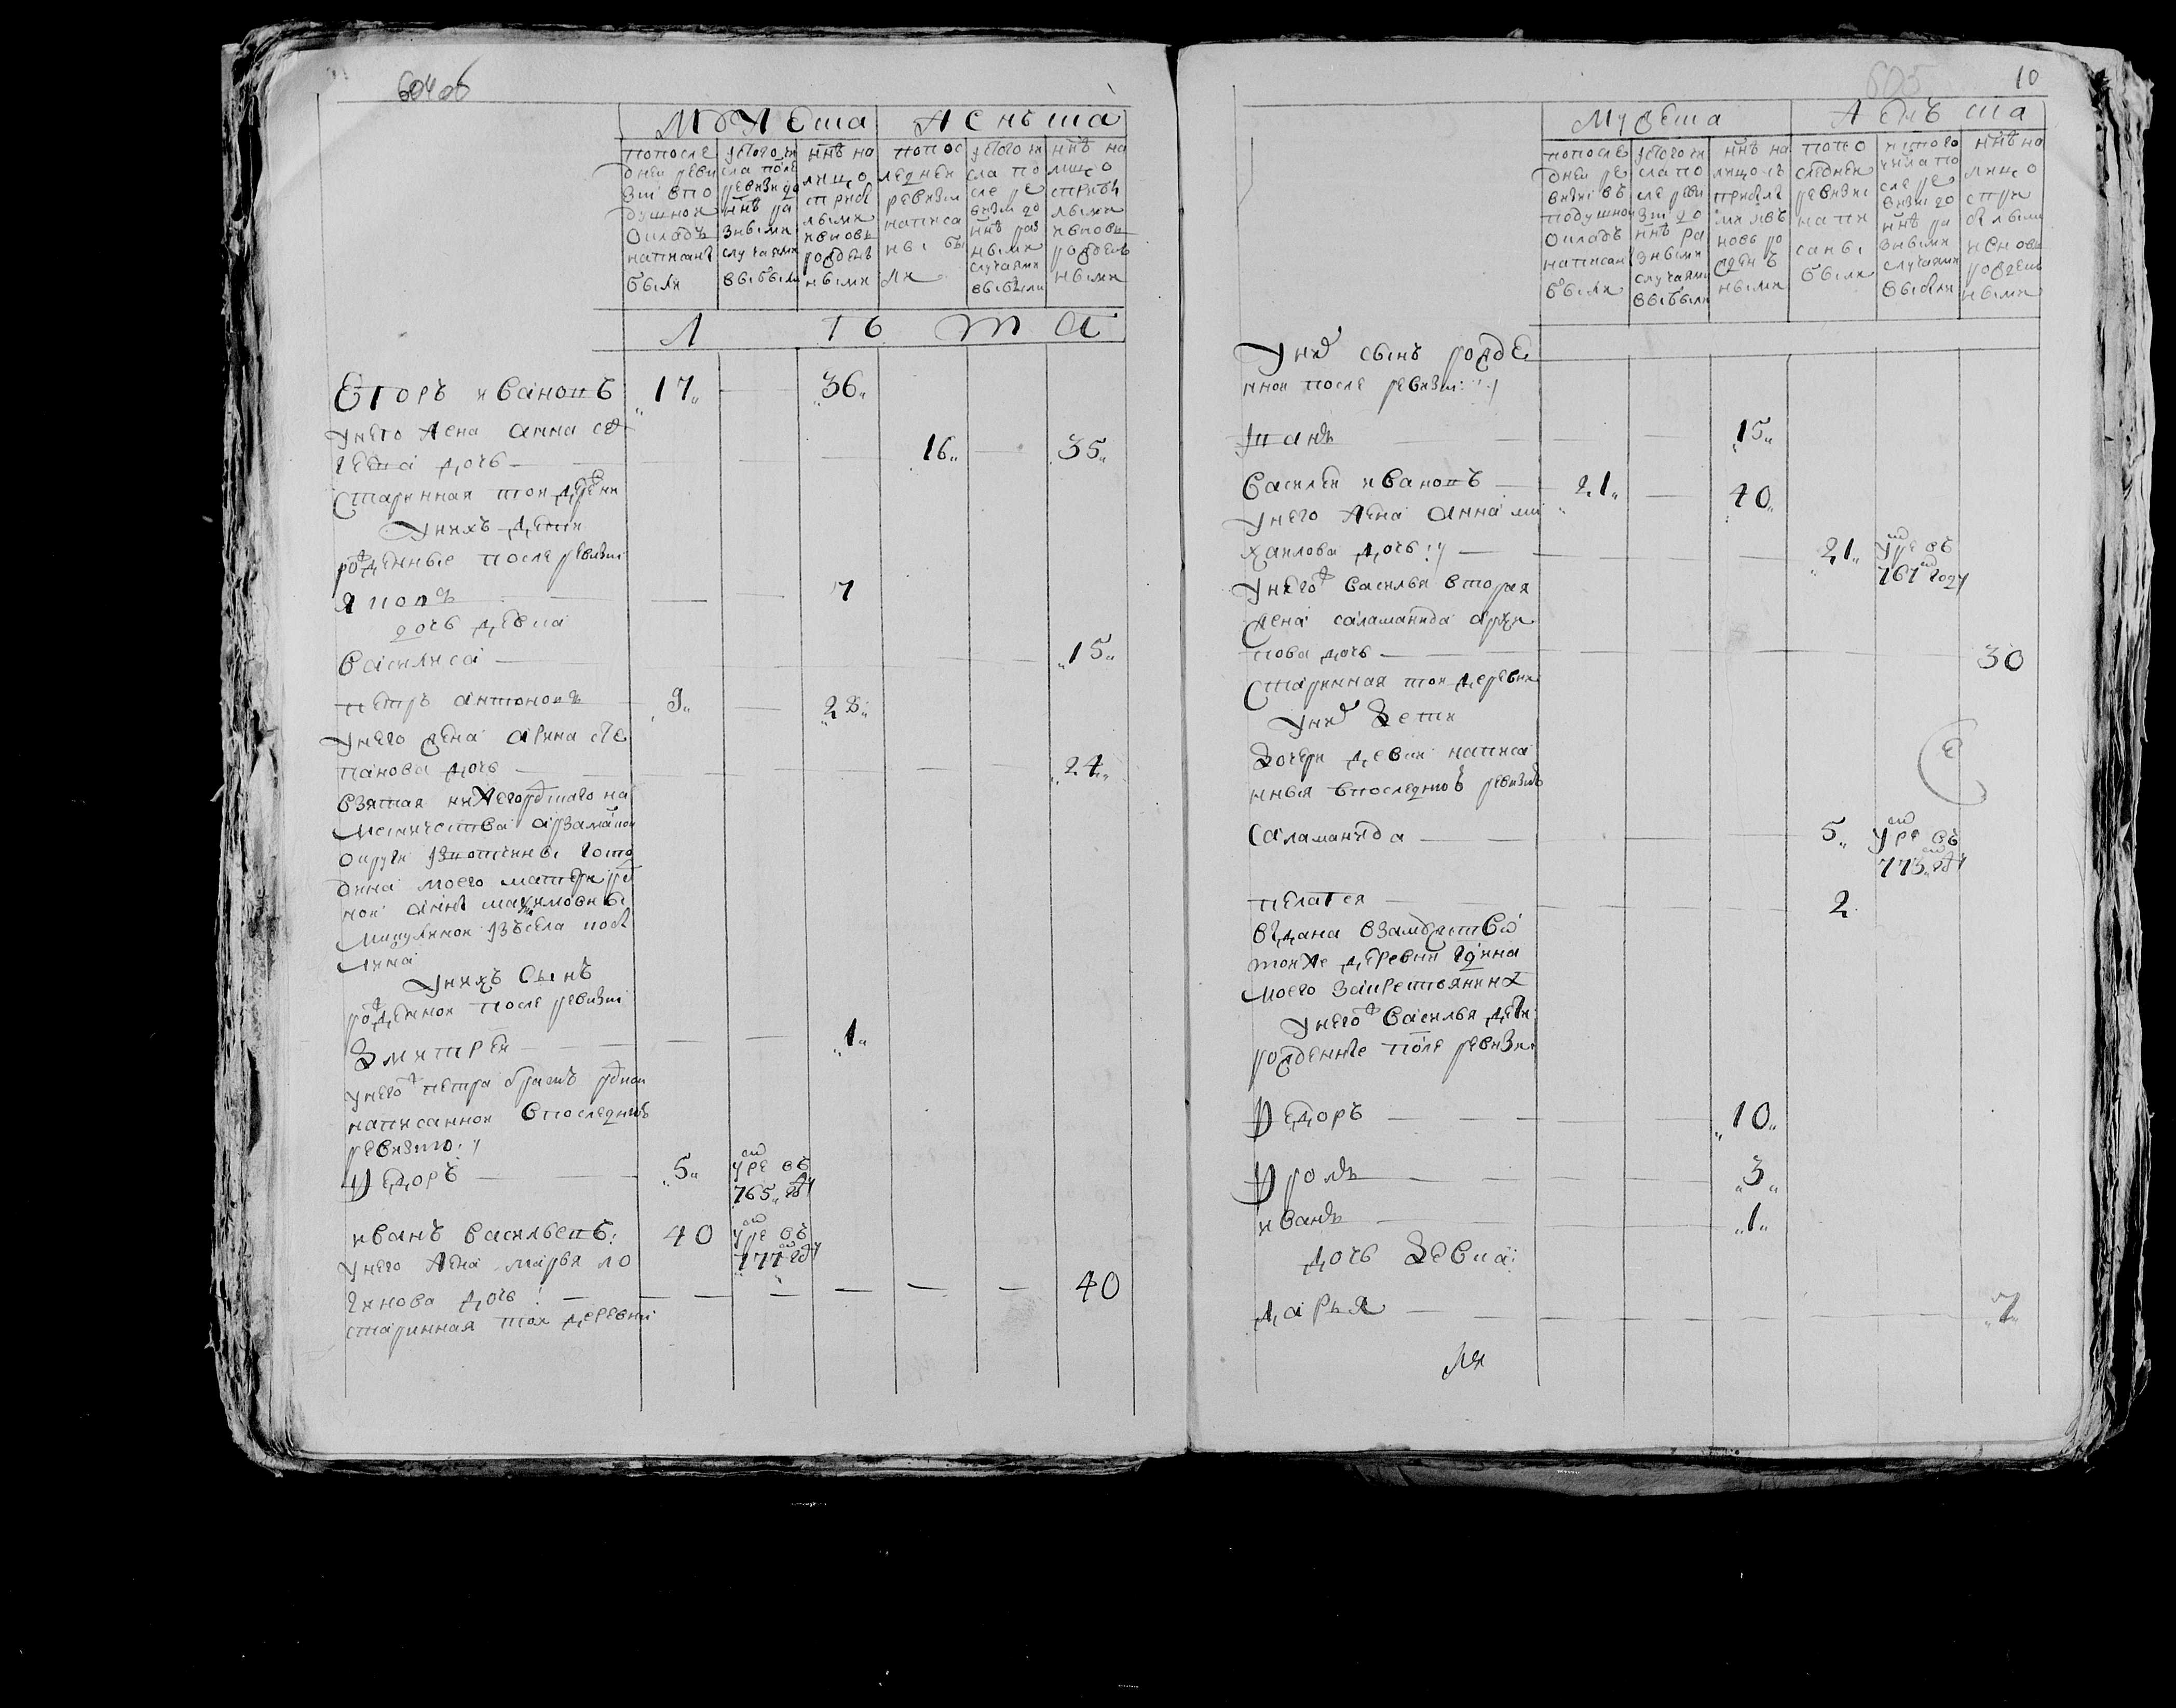 604об
Мужеска Женска
попосле
дней реви
зіи впо
душной
окладъ
написанъ
были
ұстого чи
сла после
ревизи до
ннѣ ра
зными
случаями
выбыли
ннѣ на
лицо
с прибы
лыми
и вновь
рожден
ными
попос
ледней
ревизіи
написа
ны бы
ли
ұстого чи
сла по
сле ре
визи до
ннѣ раз
ными
случаями
выбыли
ннѣ на
лицо
сприбы
лыми
ивновь
рожден
ными
Л ѣ т а
Егоръ ивановъ 17 36
унего жена анна се
геева дочь 16 35
старинная той дервни
унихъ дети
рожденные после ревизіи
яковъ 7
дочь девка
василиса 15
петръ антоновъ 9 28
унего жена арина сте
панова дочь 24
взятая нижегородскаго на
месничества арзамаской
округи извотчины госпо
дина моего матери род
ной анны максимовны
микулиной изъ села
унихъ сынъ
рожденной после ревизіи
дмитрей 1
унего ж петра братъ родной
написанной впоследнюю
ревизию
федоръ 5 умре въ
765 году
иванъ васильевъ 40 умре въ
777 году
унего жена марвя ло
гинова дочь 40
старинная той деревни
605 10
Мужеска Женска
попосле
дней ре
визиі въ
подушной
окладъ
написан
были
ұстого чи
сла по
сле реви
зіи до
ннѣ ра
зными
случаями
выбыли
ннѣ на
лицо съ
прибылы
ми ивъ
новь ро
жден
ными
попо
следней
ревизиі
напи
саны
были
истого
числа по
сле ре
визи до
ннѣ ра
зными
случаями
выбыли
ннѣ на
лицо
спри
былыми
ивнова
рожден
ными
уних сынъ рожде
нной после ревизіи
иванъ 15
василей ивановъ 21 40
унего жена анна ми
хаилова дочь 21 умре въ
767 году
унего ж василья вторая
жена саламанида архи
пова дочь 30
старинная той деревни
уних дети
дочери девки написа
нныя впоследнюю ревизию
саламанида 5 умре въ
773 году
пелагея 2
выдана взамужество
тойже деревни гдина
моего закрестьянина
унего ж василья дети
рожденные после ревизи
федоръ 10
фролъ 3
иванъ 1
дочь девка
дарья 7